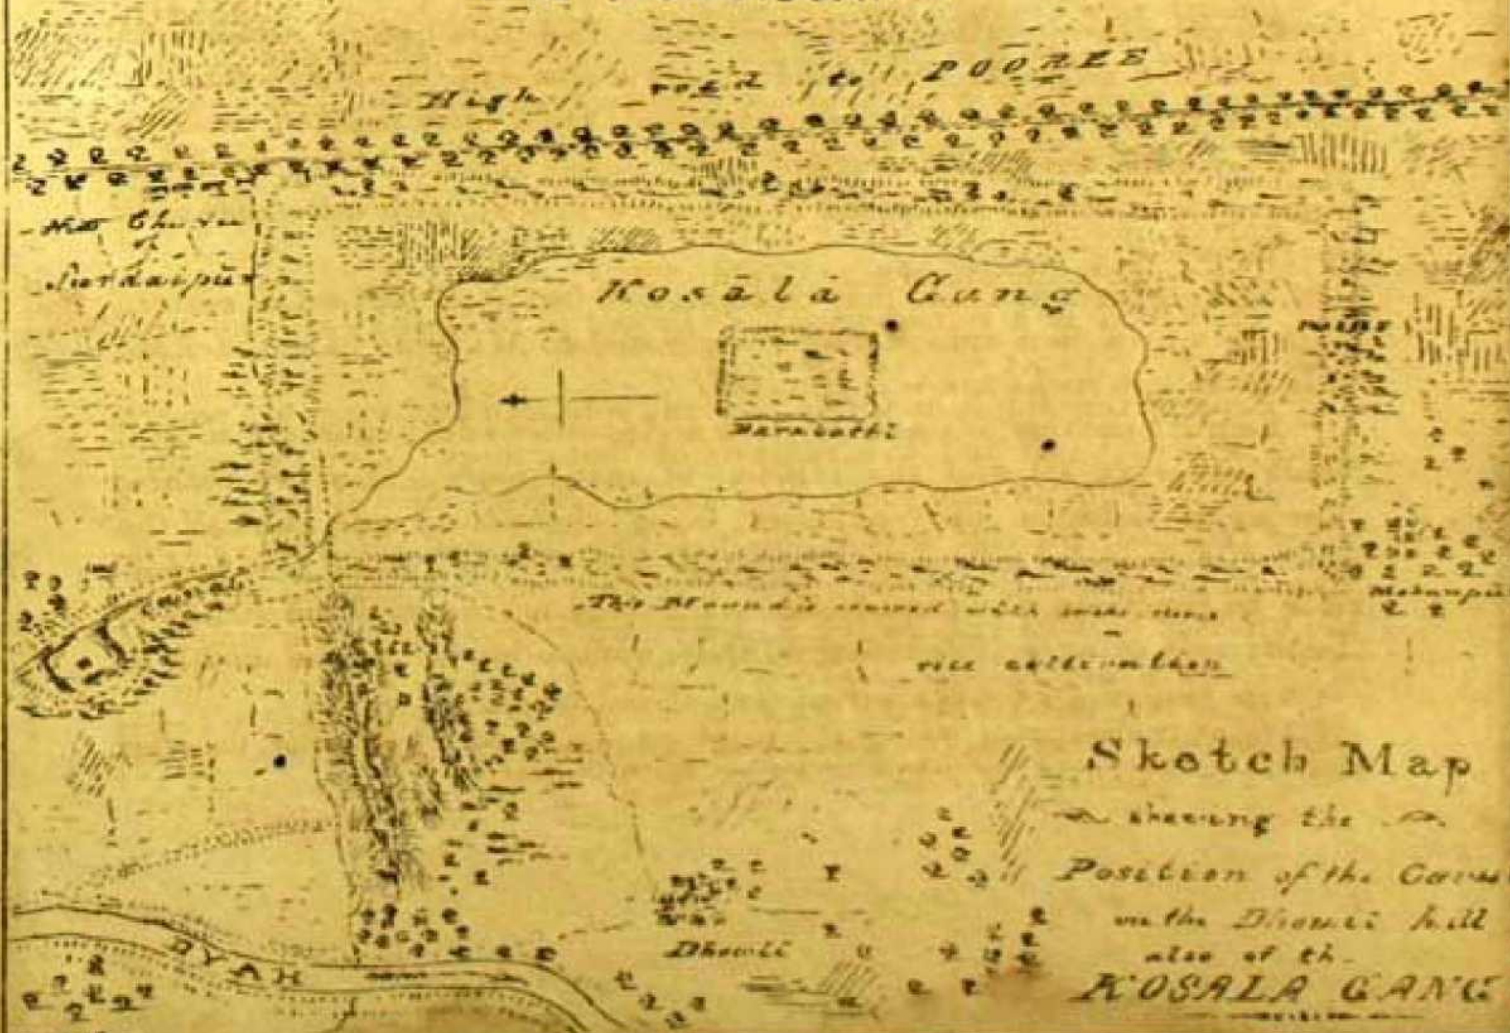 High road to POOREE
Sardaipur
Kosālā Gung
Barabatti
Canal
The Mound is covered with
rice cultivation
DYAH
Dhowli
Sketch Map
shewing the
Position of the Caves
on the Dhowli hill
also of the
KOSALA GANG